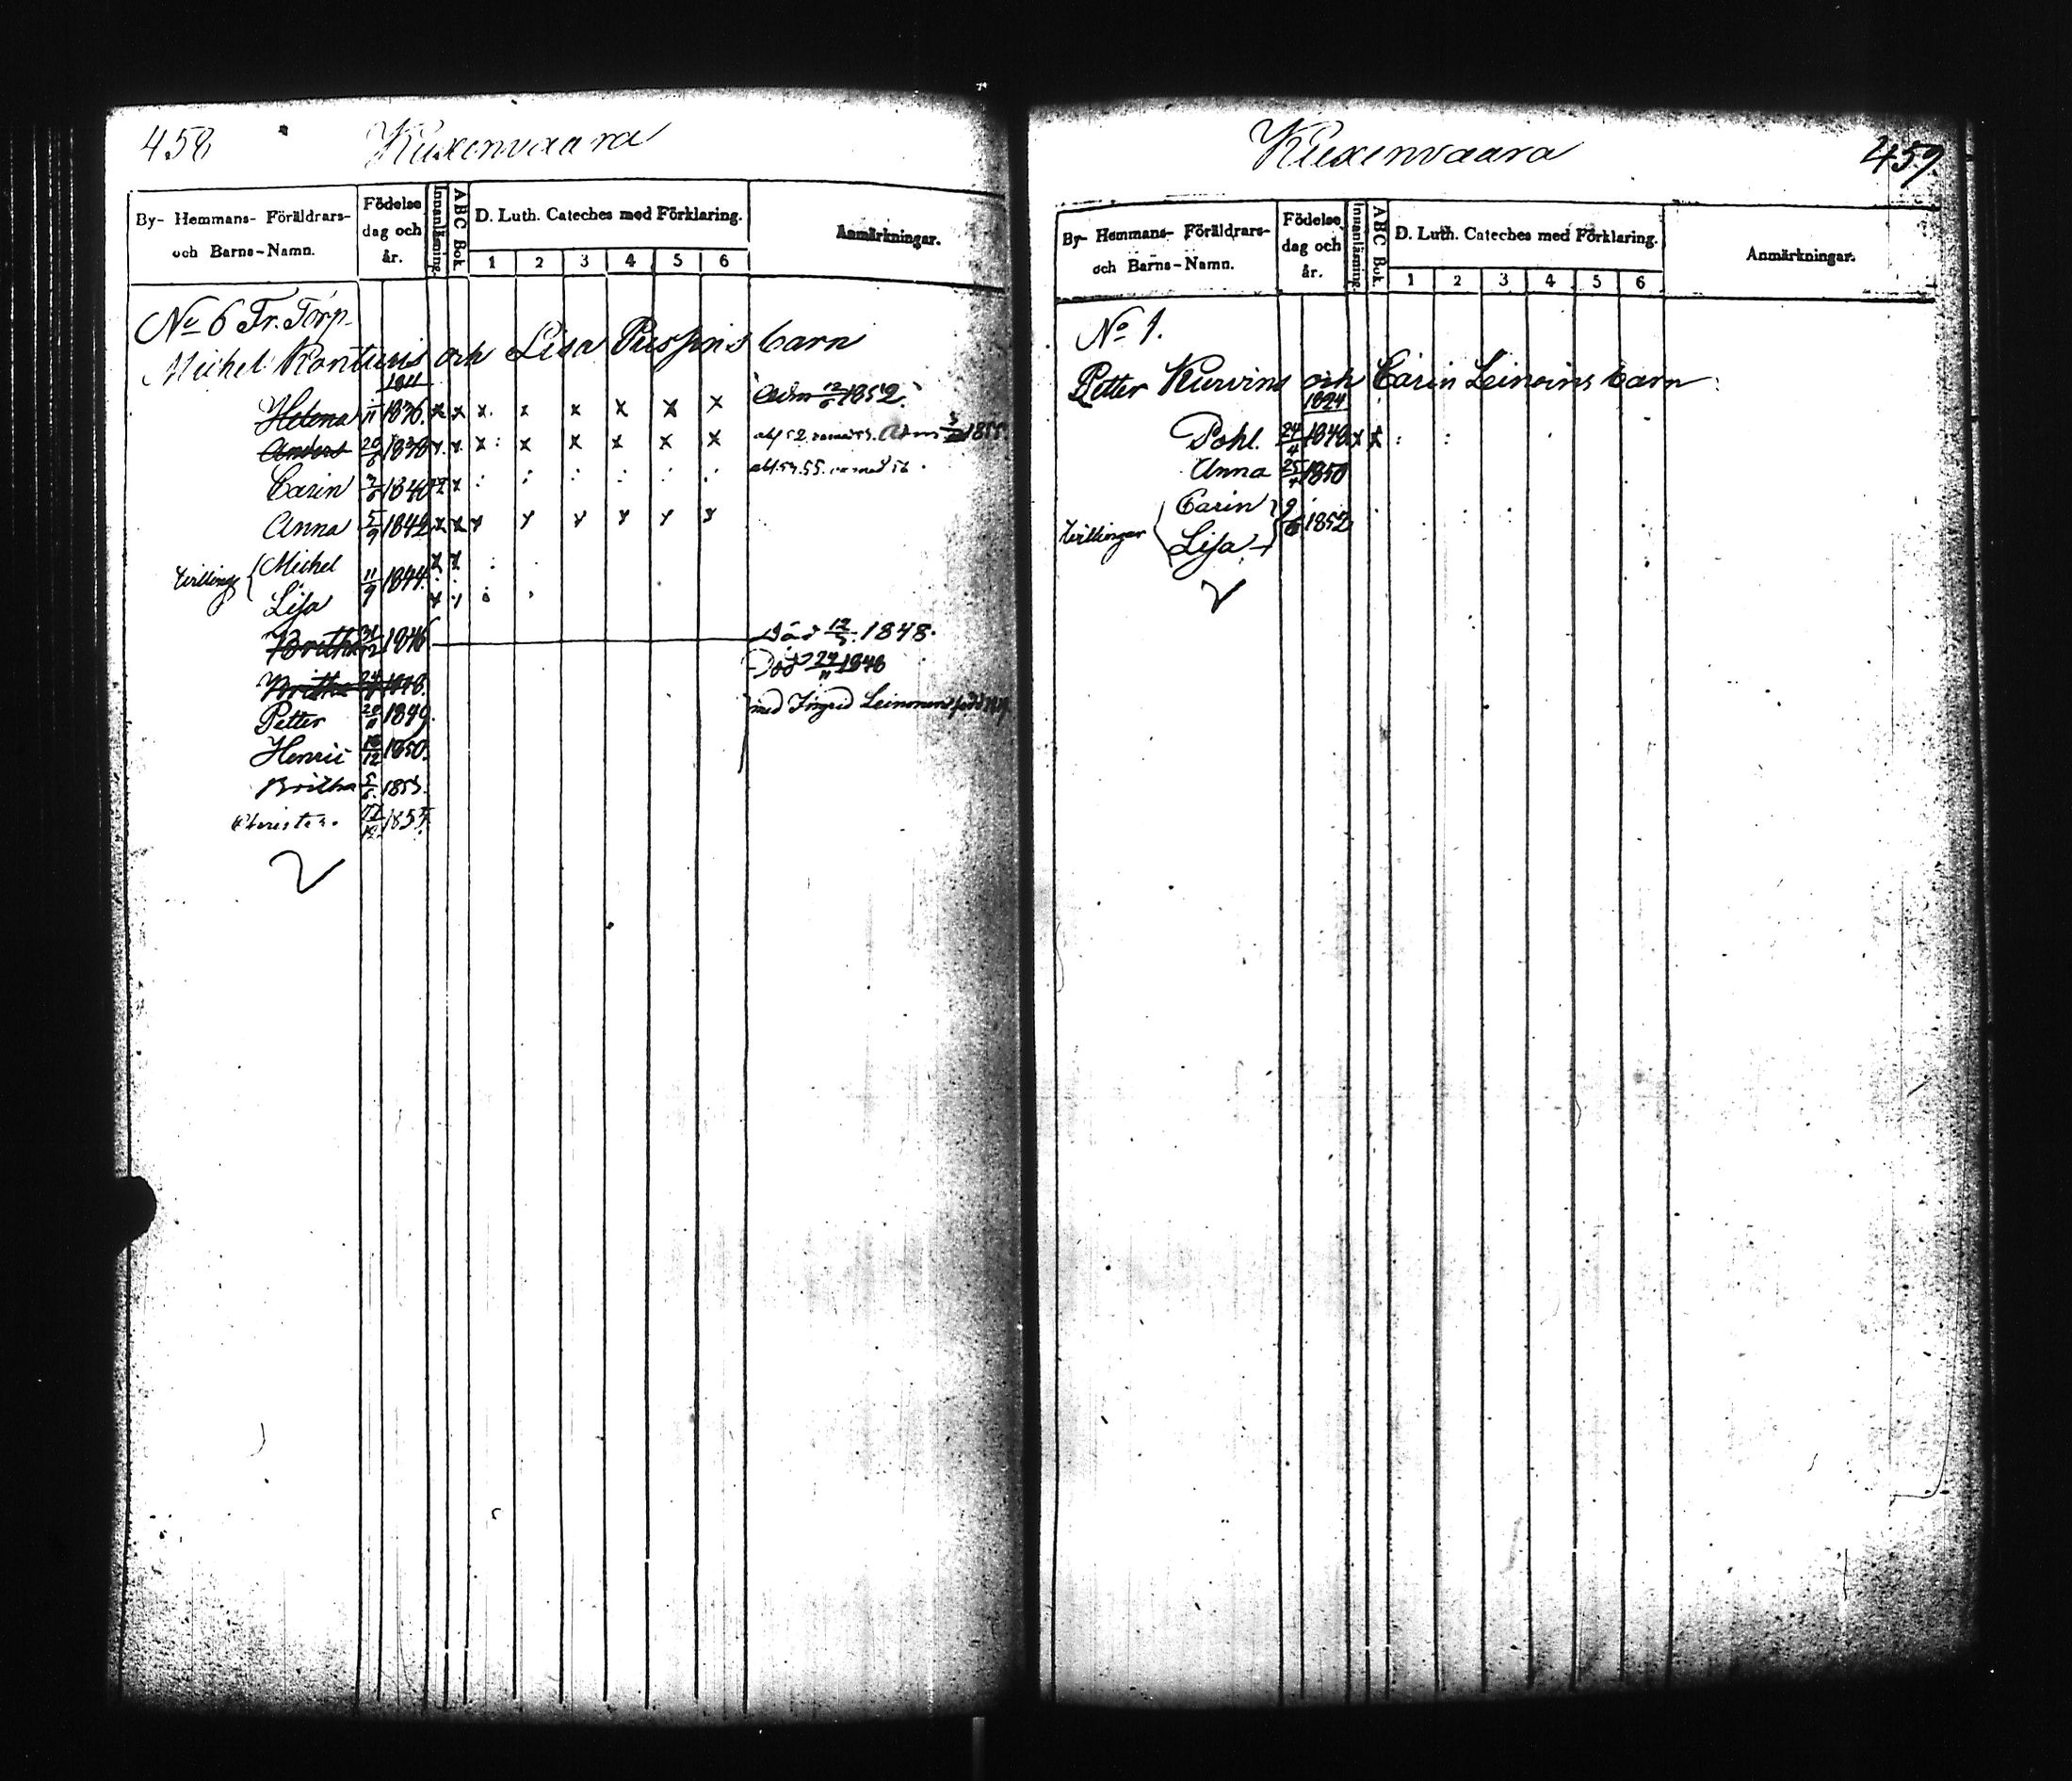 458 Kuxenvaara
By- Hemmans- Föräldrars- och Barns-Namn. Födelse dag och år. Innanläsning. ABC Bok. D. Luth. Cateches med Förklaring. 1 2 3 4 5 6 Anmärkningar.
No 6 Fr. Torp.
Michel och Lisa barn
1811
Helena 11 1836. x x x x x x x x Adm 12/6 1852.
Anders 20/8 1838 x x x x x x x x Adm 1855
Carin 1840 x
Anna 5/9 1842 x x x x x x x x
Michel x x
11/9 1844
Lisa x x
Britha 1846 Död 12/3 1848.
Britha 1848. Död 24/11 1848
Petter 20/11 1849. med Ingrid Leinonen född
Henric 18/12 1850.
Britha 5/6 1853.
Christ. 17/12 1855.
Kuxenvaara 459.
By- Hemmans- Föräldrars- och Barns-Namn. Födelse dag och år. Innanläsning. ABC Bok. D. Luth. Cateches med Förklaring. 1 2 3 4 5 6 Anmärkningar.
No 1.
Petter Kurvins och Carin Leinoins barn
1824
Pohl. 24/4 1848 x x
Anna 25 1850
Carin
Tvillingar 9 1852
Lisa